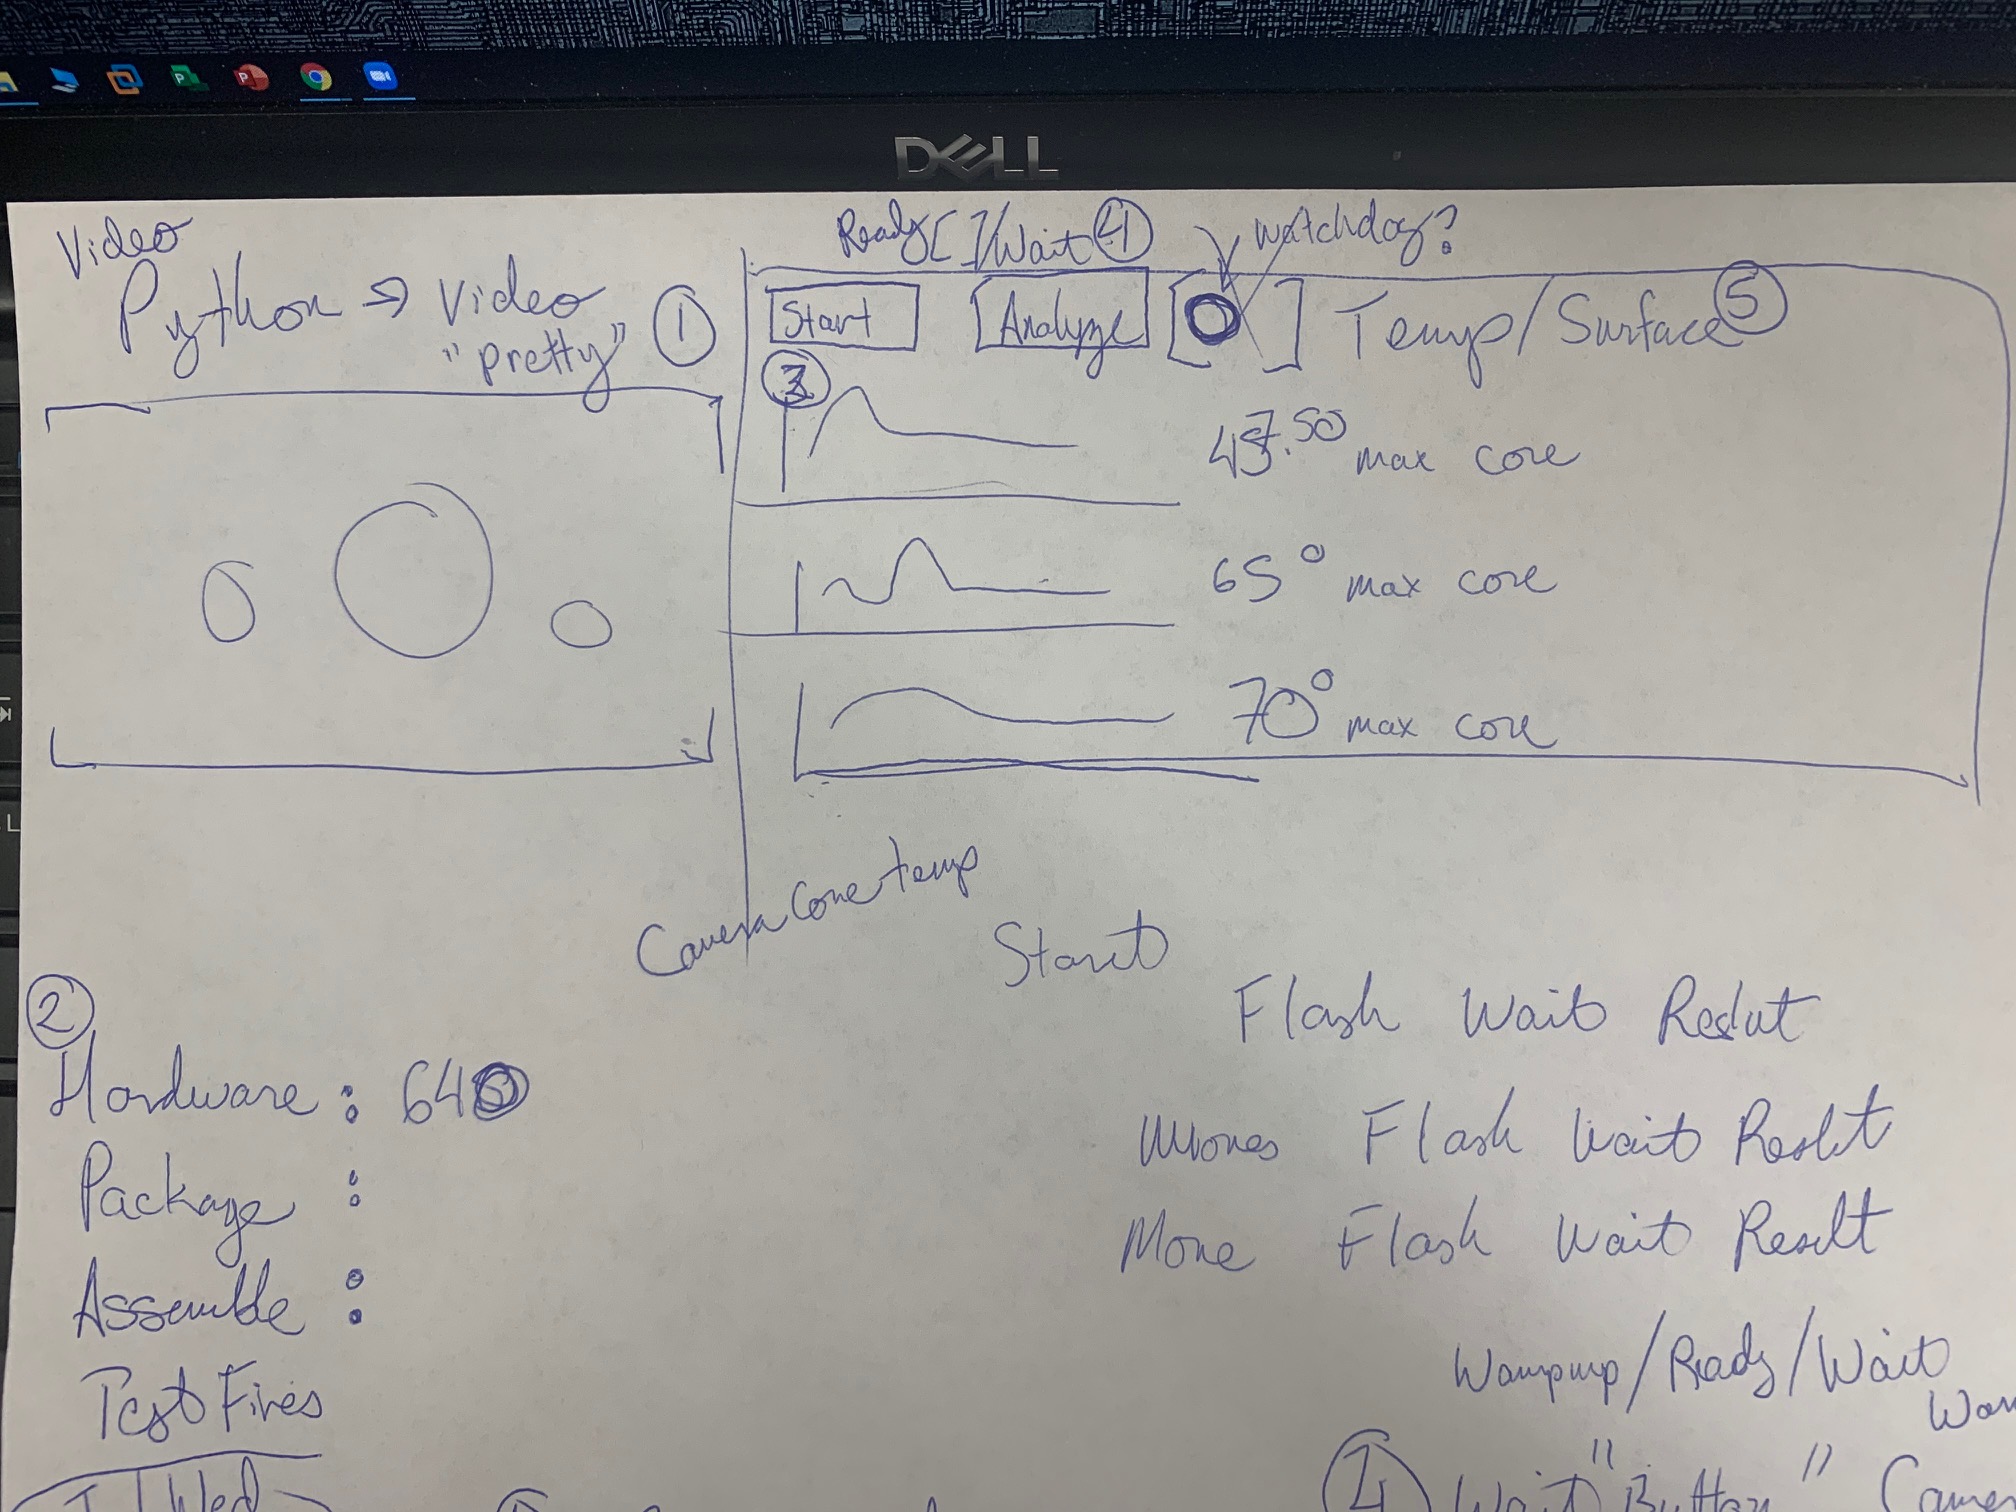 DELL
Video
Python → Video
"pretty"
①
Ready [ ]/Wait ④
watchdog?
Start
Analyze
Temp/Surface ⑤
③
max core
65° max core
70° max core
Camera Core temp
②
Hardware: 640
Package:
Assemble:
Test Fires
Start
Flash Wait Reslut
Flash Wait Reslut
More Flash Wait Result
Warmup/Ready/Wait
Wait "Button"